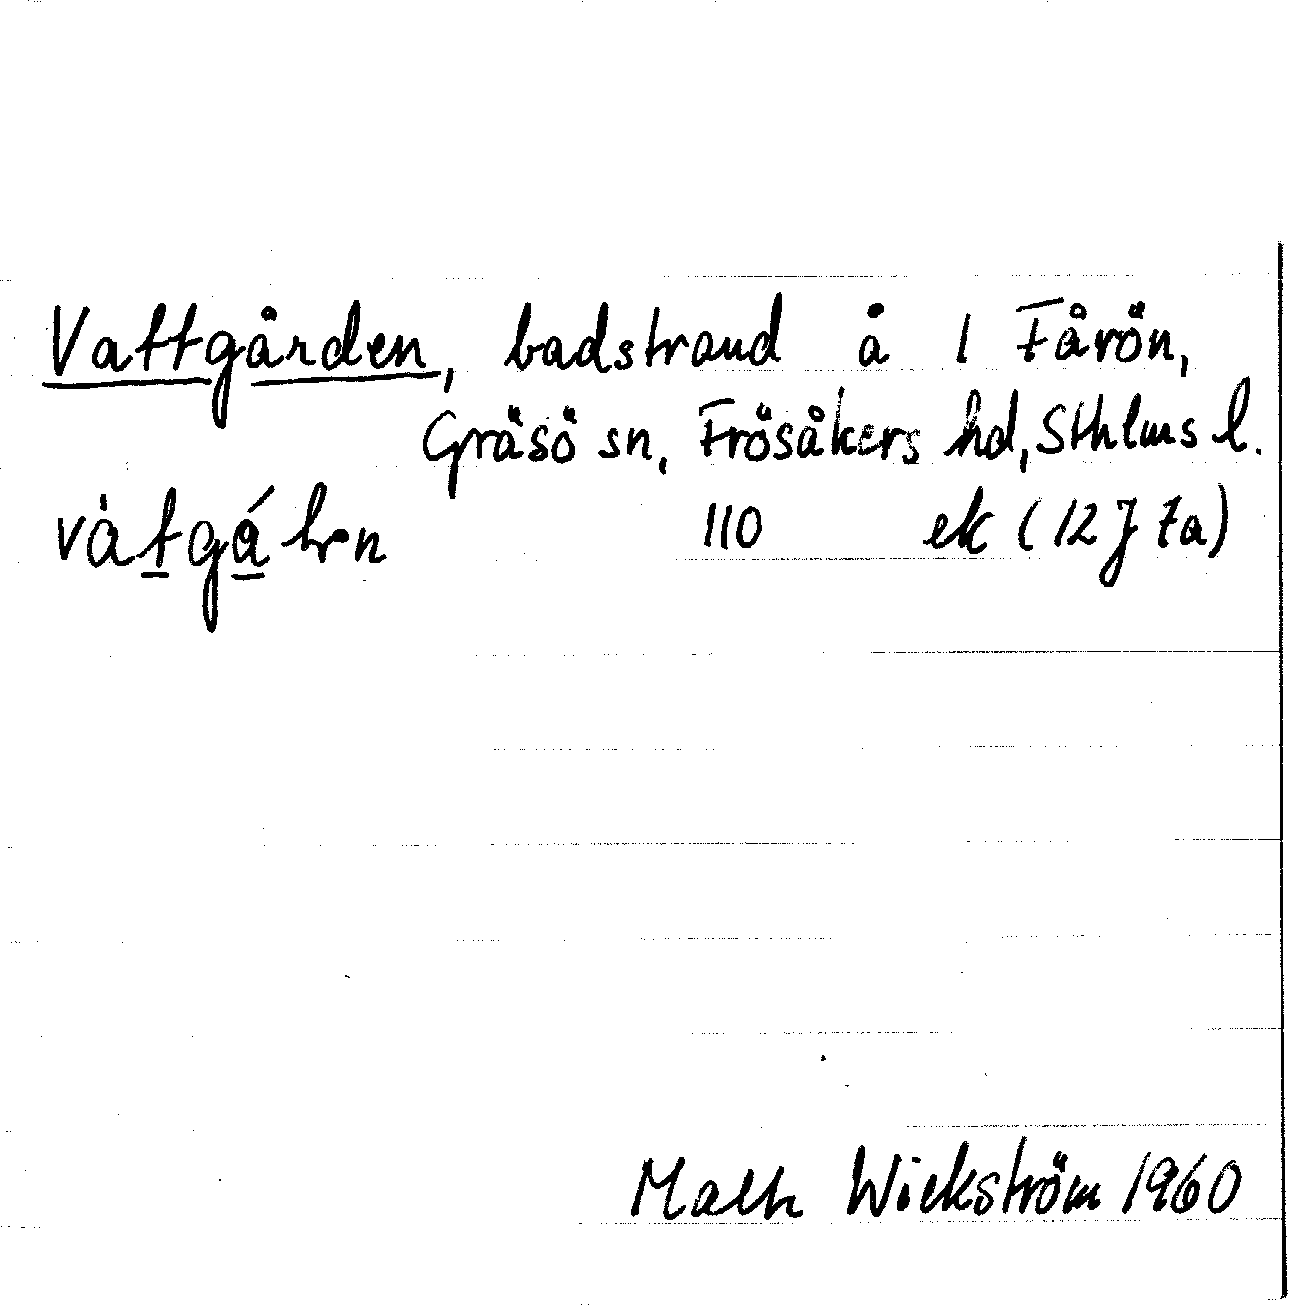 Vattgården, badstrand å 1 Fårön,
Gräsö sn, Frösåkers hd, Sthlms l.
110 ek (12J 7a)
Wickström 1960